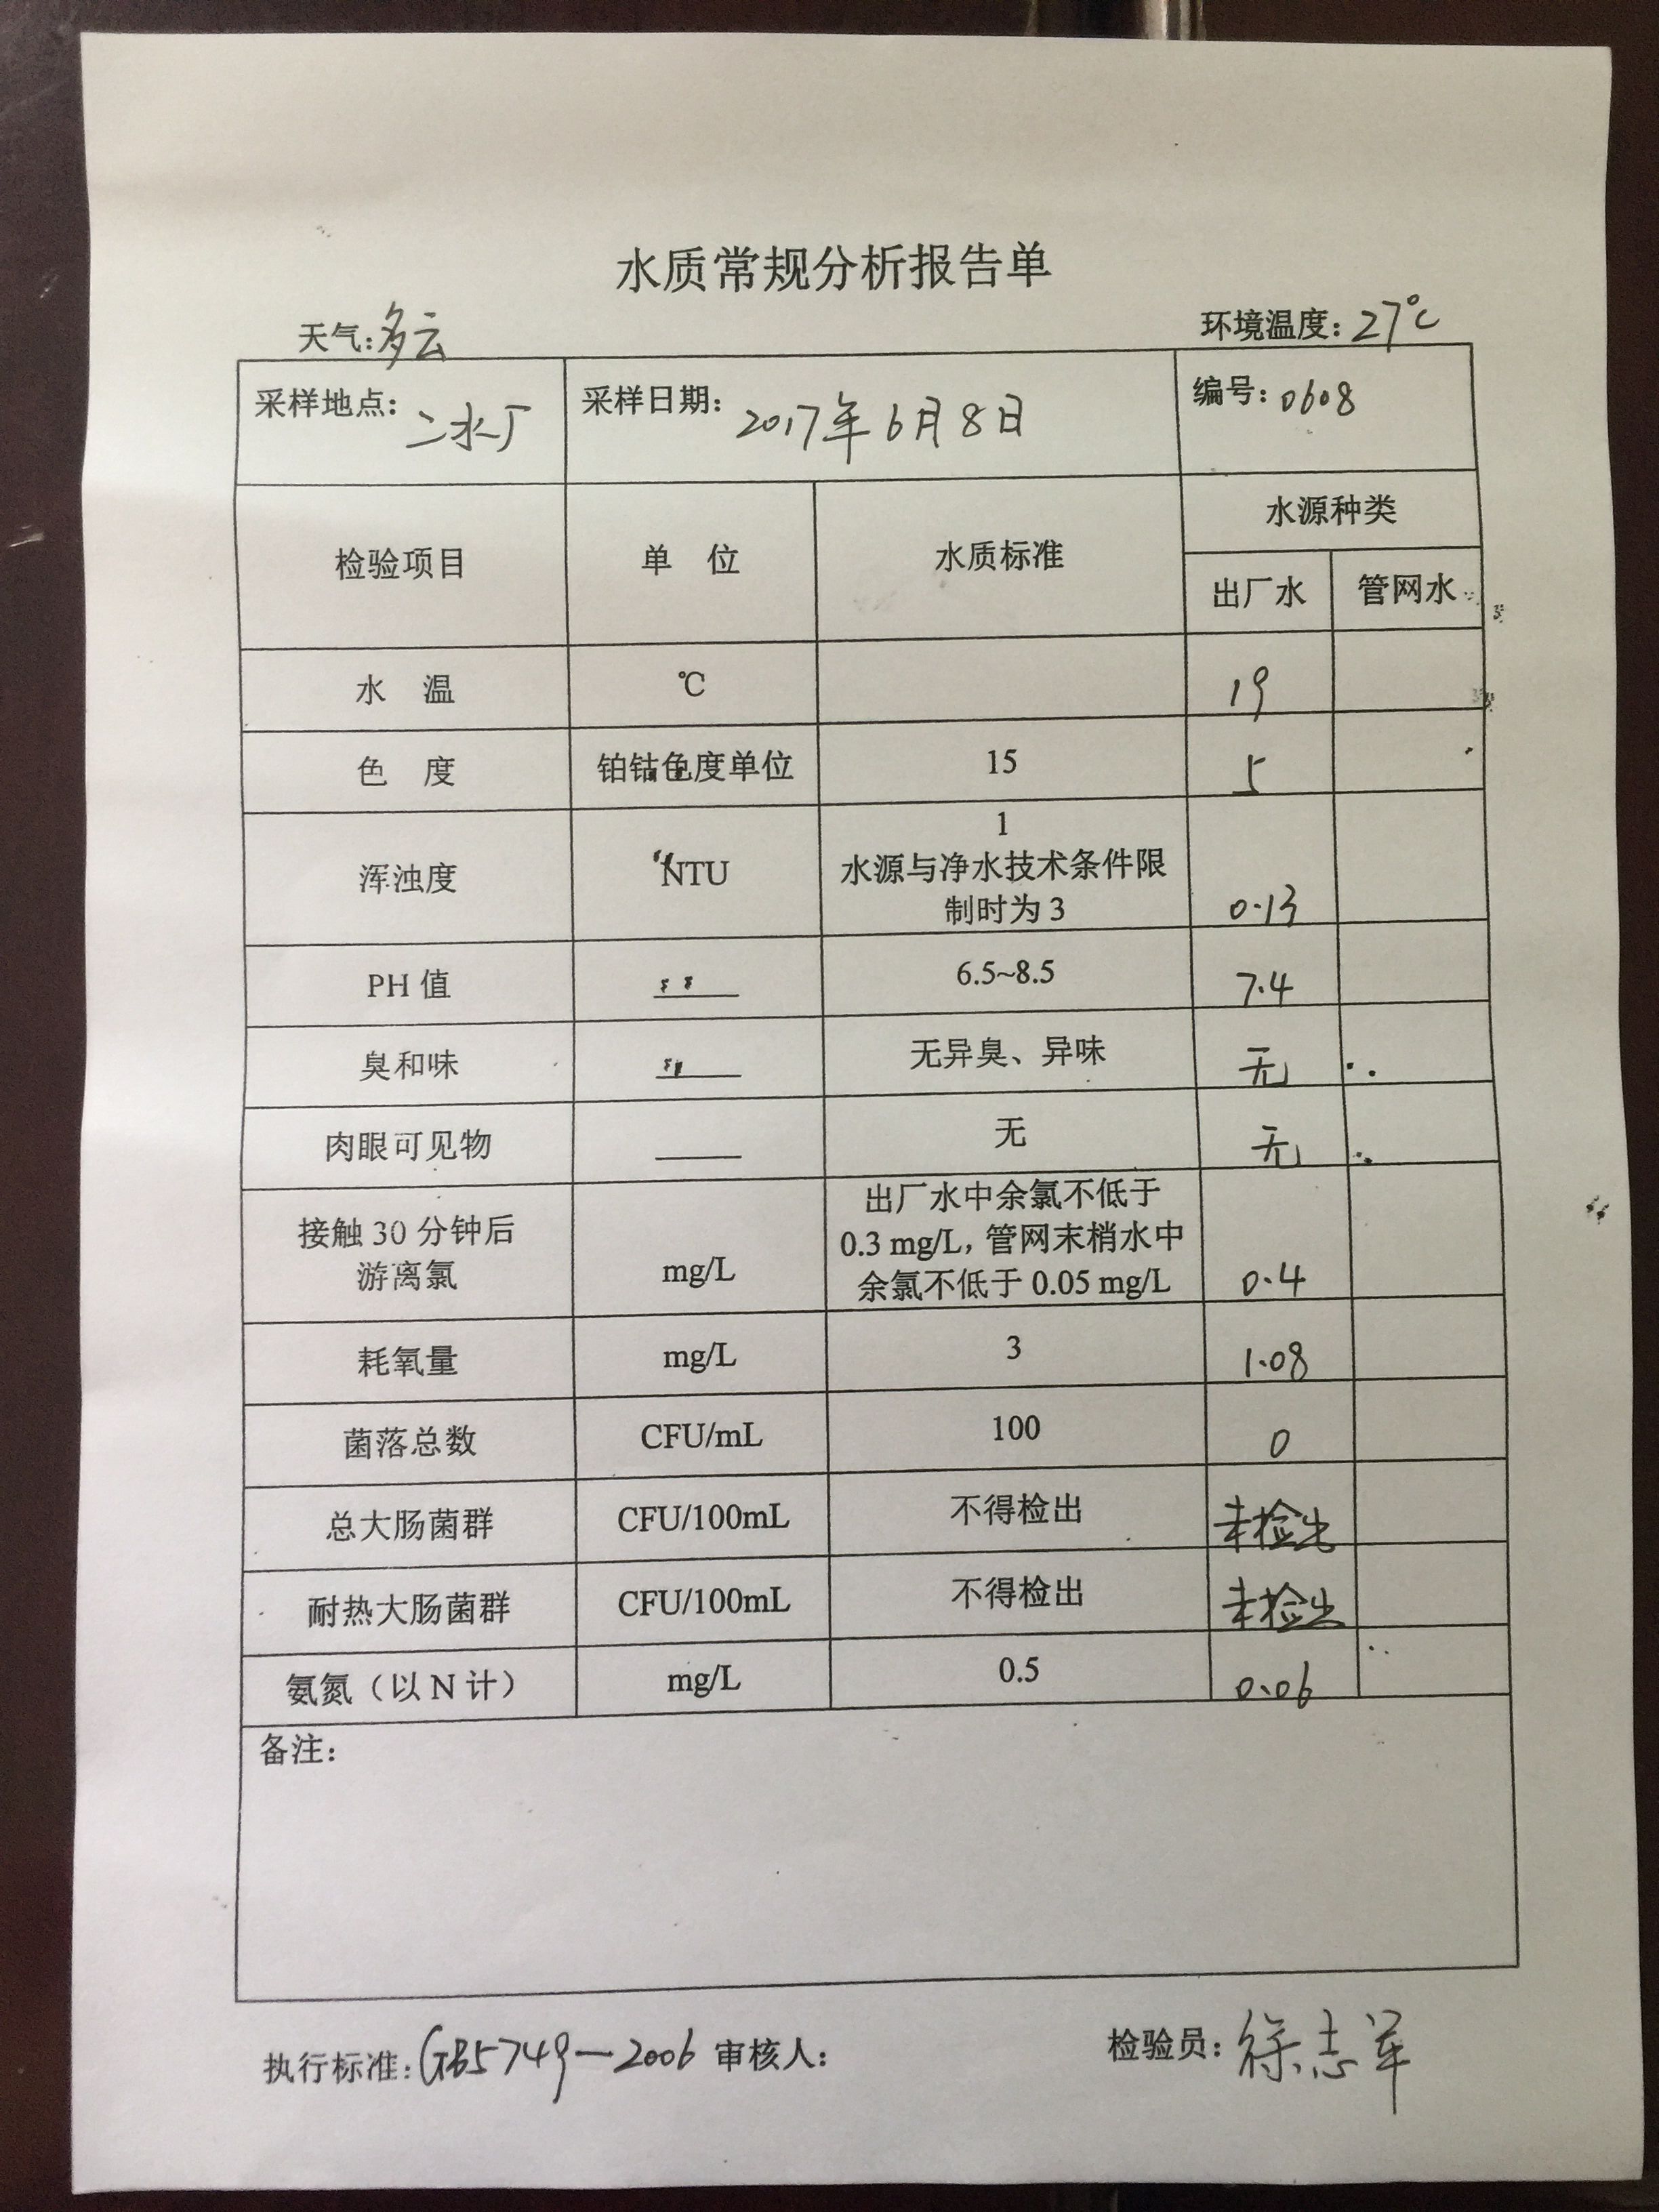 水质常规分析报告单
天气:多云 环境温度:27℃
采样地点: 二水厂 采样日期: 2017年6月8日 编号:0608
检验项目 单 位 水质标准 水源种类
出厂水 管网水
水 温 ℃ 19
色 度 铂钴色度单位 15 5
浑浊度 NTU 1
水源与净水技术条件限
制时为 3 0.13
PH 值 —— 6.5~8.5 7.4
臭和味 —— 无异臭、异味 无
肉眼可见物 —— 无 无
接触 30 分钟后
游离氯 mg/L 出厂水中余氯不低于
0.3 mg/L,管网末梢水中
余氯不低于 0.05 mg/L 0.4
耗氧量 mg/L 3 1.08
菌落总数 CFU/mL 100 0
总大肠菌群 CFU/100mL 不得检出 未检出
耐热大肠菌群 CFU/100mL 不得检出 未检出
氨氮(以 N 计) mg/L 0.5 0.06
备注:
执行标准:GB5749—2006 审核人: 检验员:徐志军